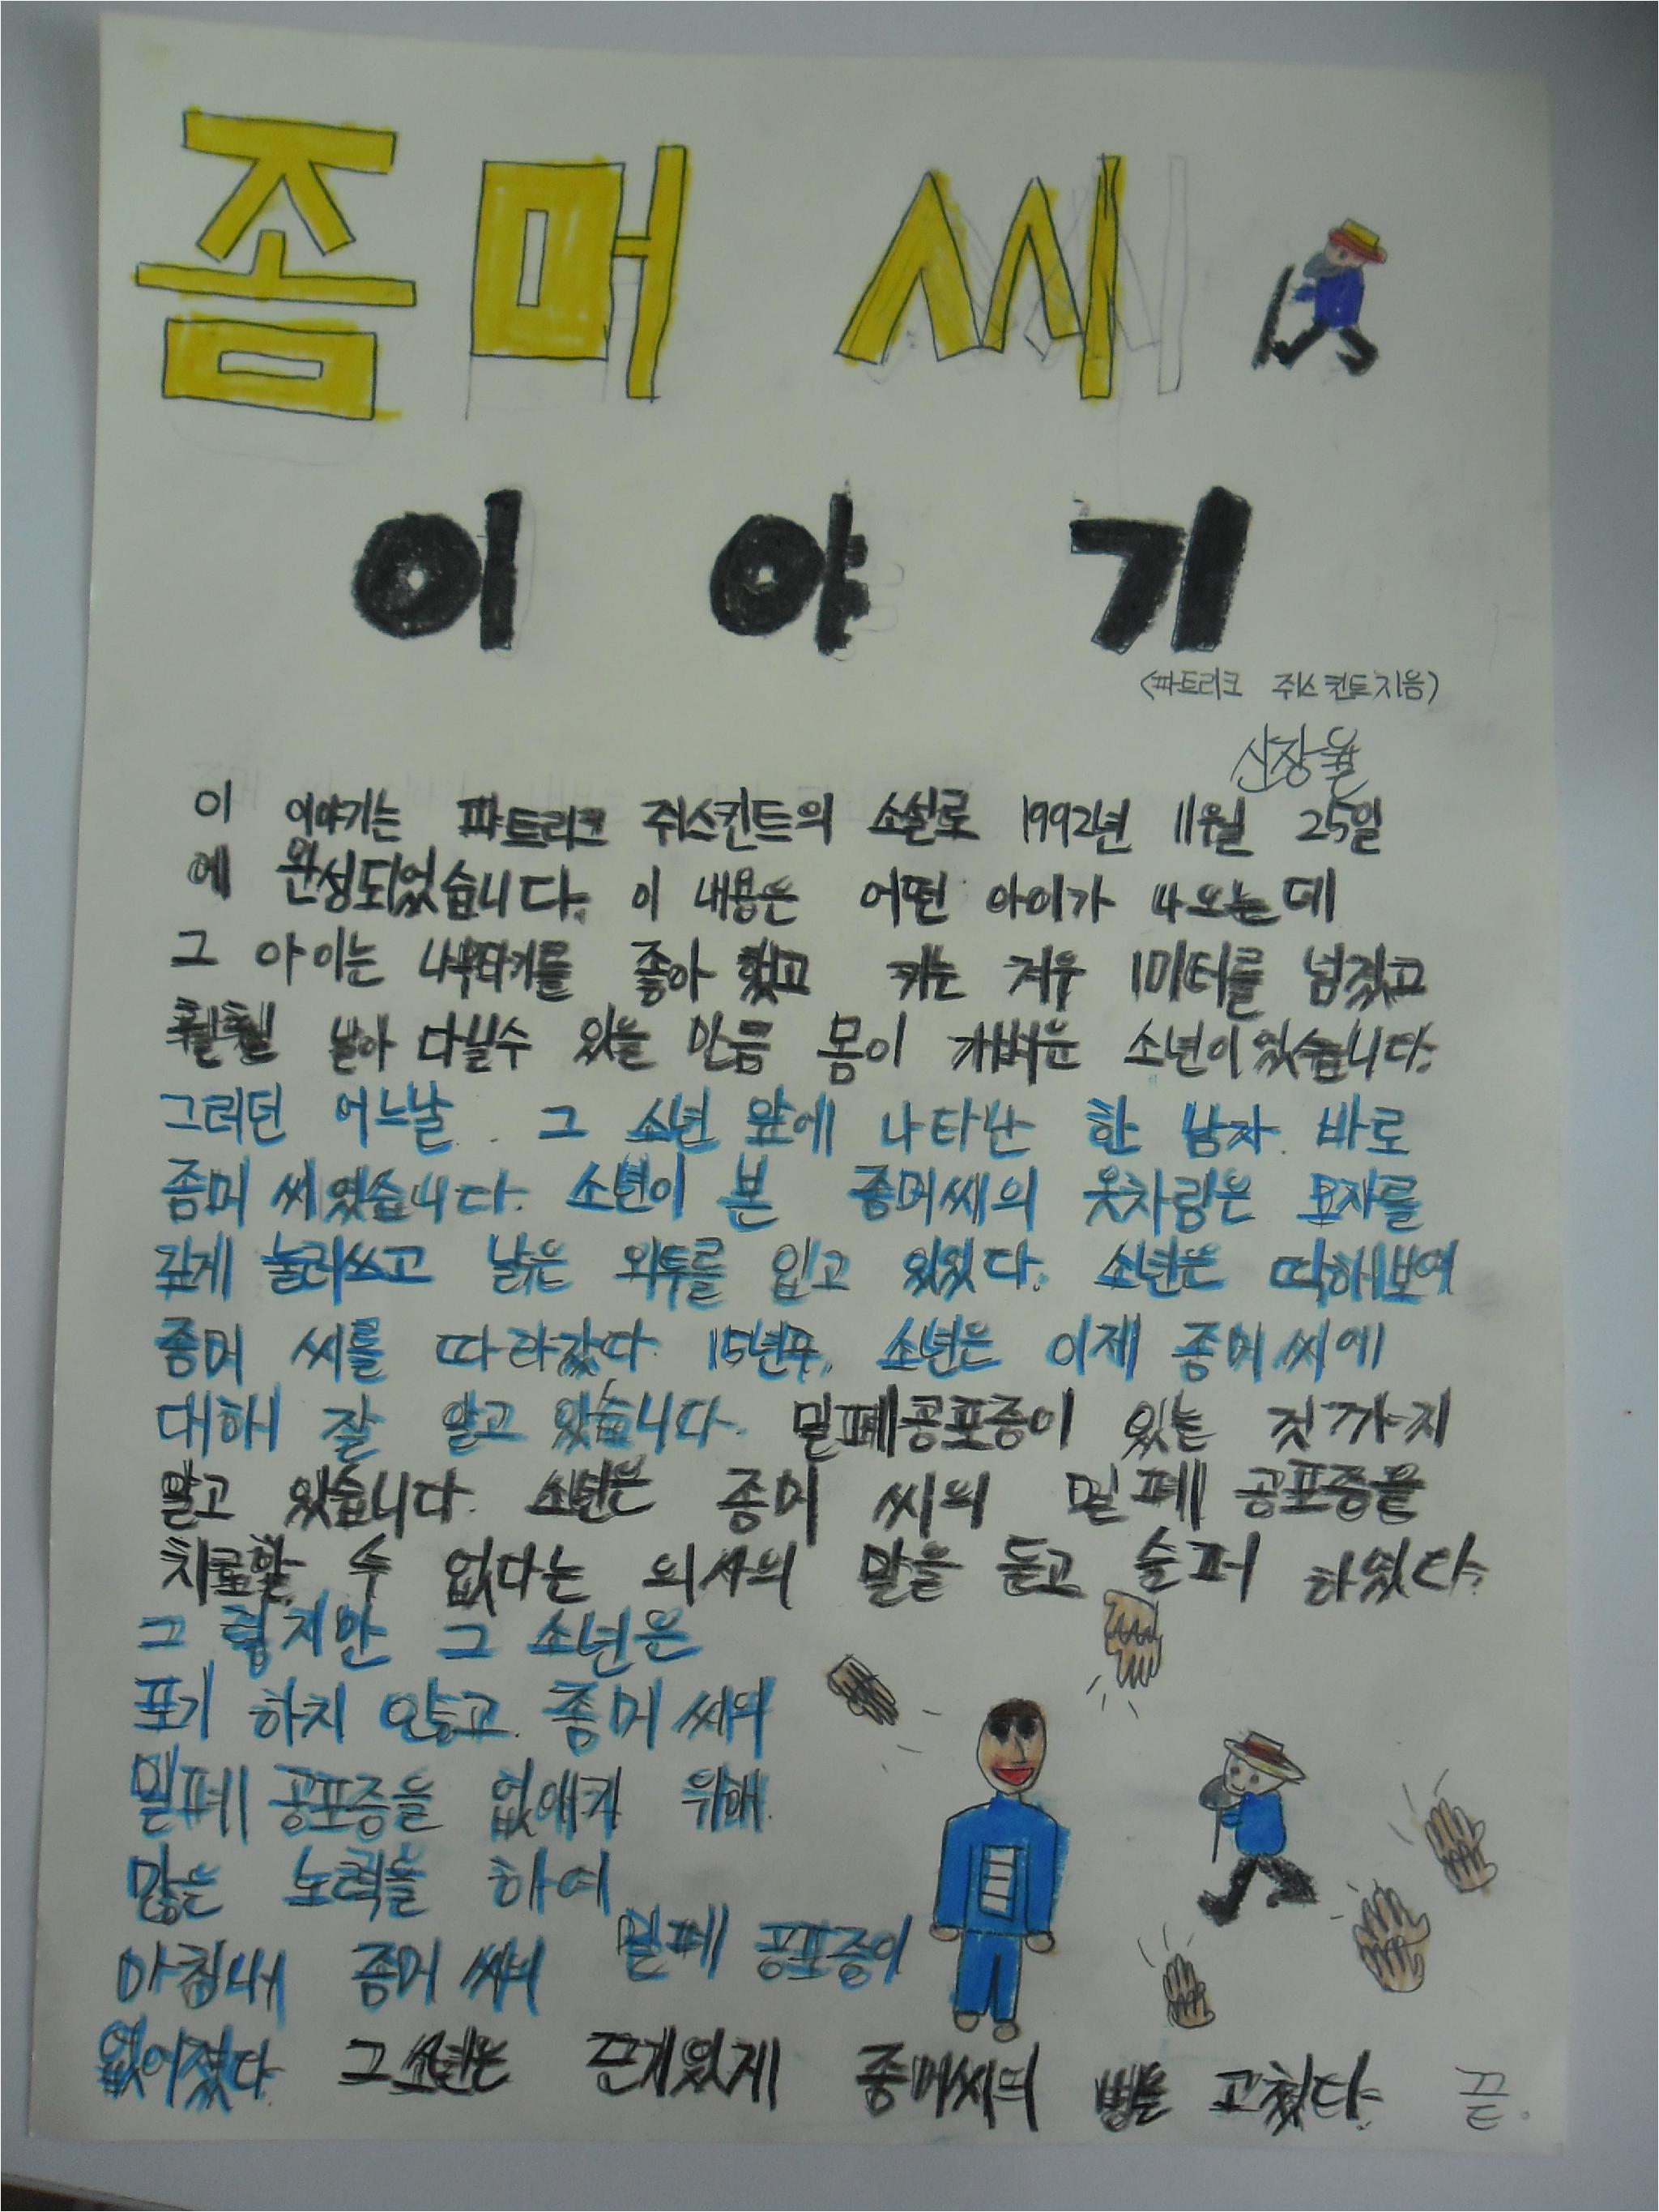 좀머 씨
이 야 기
<파트리크 쥐스킨트지음>
신장율
이 이야기는 파트리크 쥐스킨트의 소설로 1992년 11월 25일
에 완성되었습니다. 이 내용은 어떤 아이가 나오는데
그 아이는 나무타기를 좋아 했고 키는 겨우 1미터를 넘겼고
훨훨 날아 다닐수 있을 만큼 몸이 가벼운 소년이있습니다.
그러던 어느날 그 소년 앞에 나타난 한 남자. 바로
좀머 씨였습니다. 소년이 본 좀머씨의 옷차림은 모자를
깊게 눌러쓰고 낡은 외투를 입고 있었다. 소년은 딱해보여
좀머 씨를 따라갔다. 15년후, 소년은 이제 좀머씨에
대해 잘 알고 있습니다. 밀폐공포증이 있는 것까지
알고 있습니다. 소년은 좀머 씨의 밀폐 공포증을
치료할 수 없다는 의사의 말을 듣고 슬퍼 하였다.
그 렇지만 그 소년은
포기 하지 않고. 좀머 씨의
밀폐 공포증을 없애기 위해.
많은 노력을 하여
마침내 좀머 씨의 밀폐 공포증이
없어졌다. 그소년은 끈기있게 좀머씨의 병을 고쳤다. 끝.